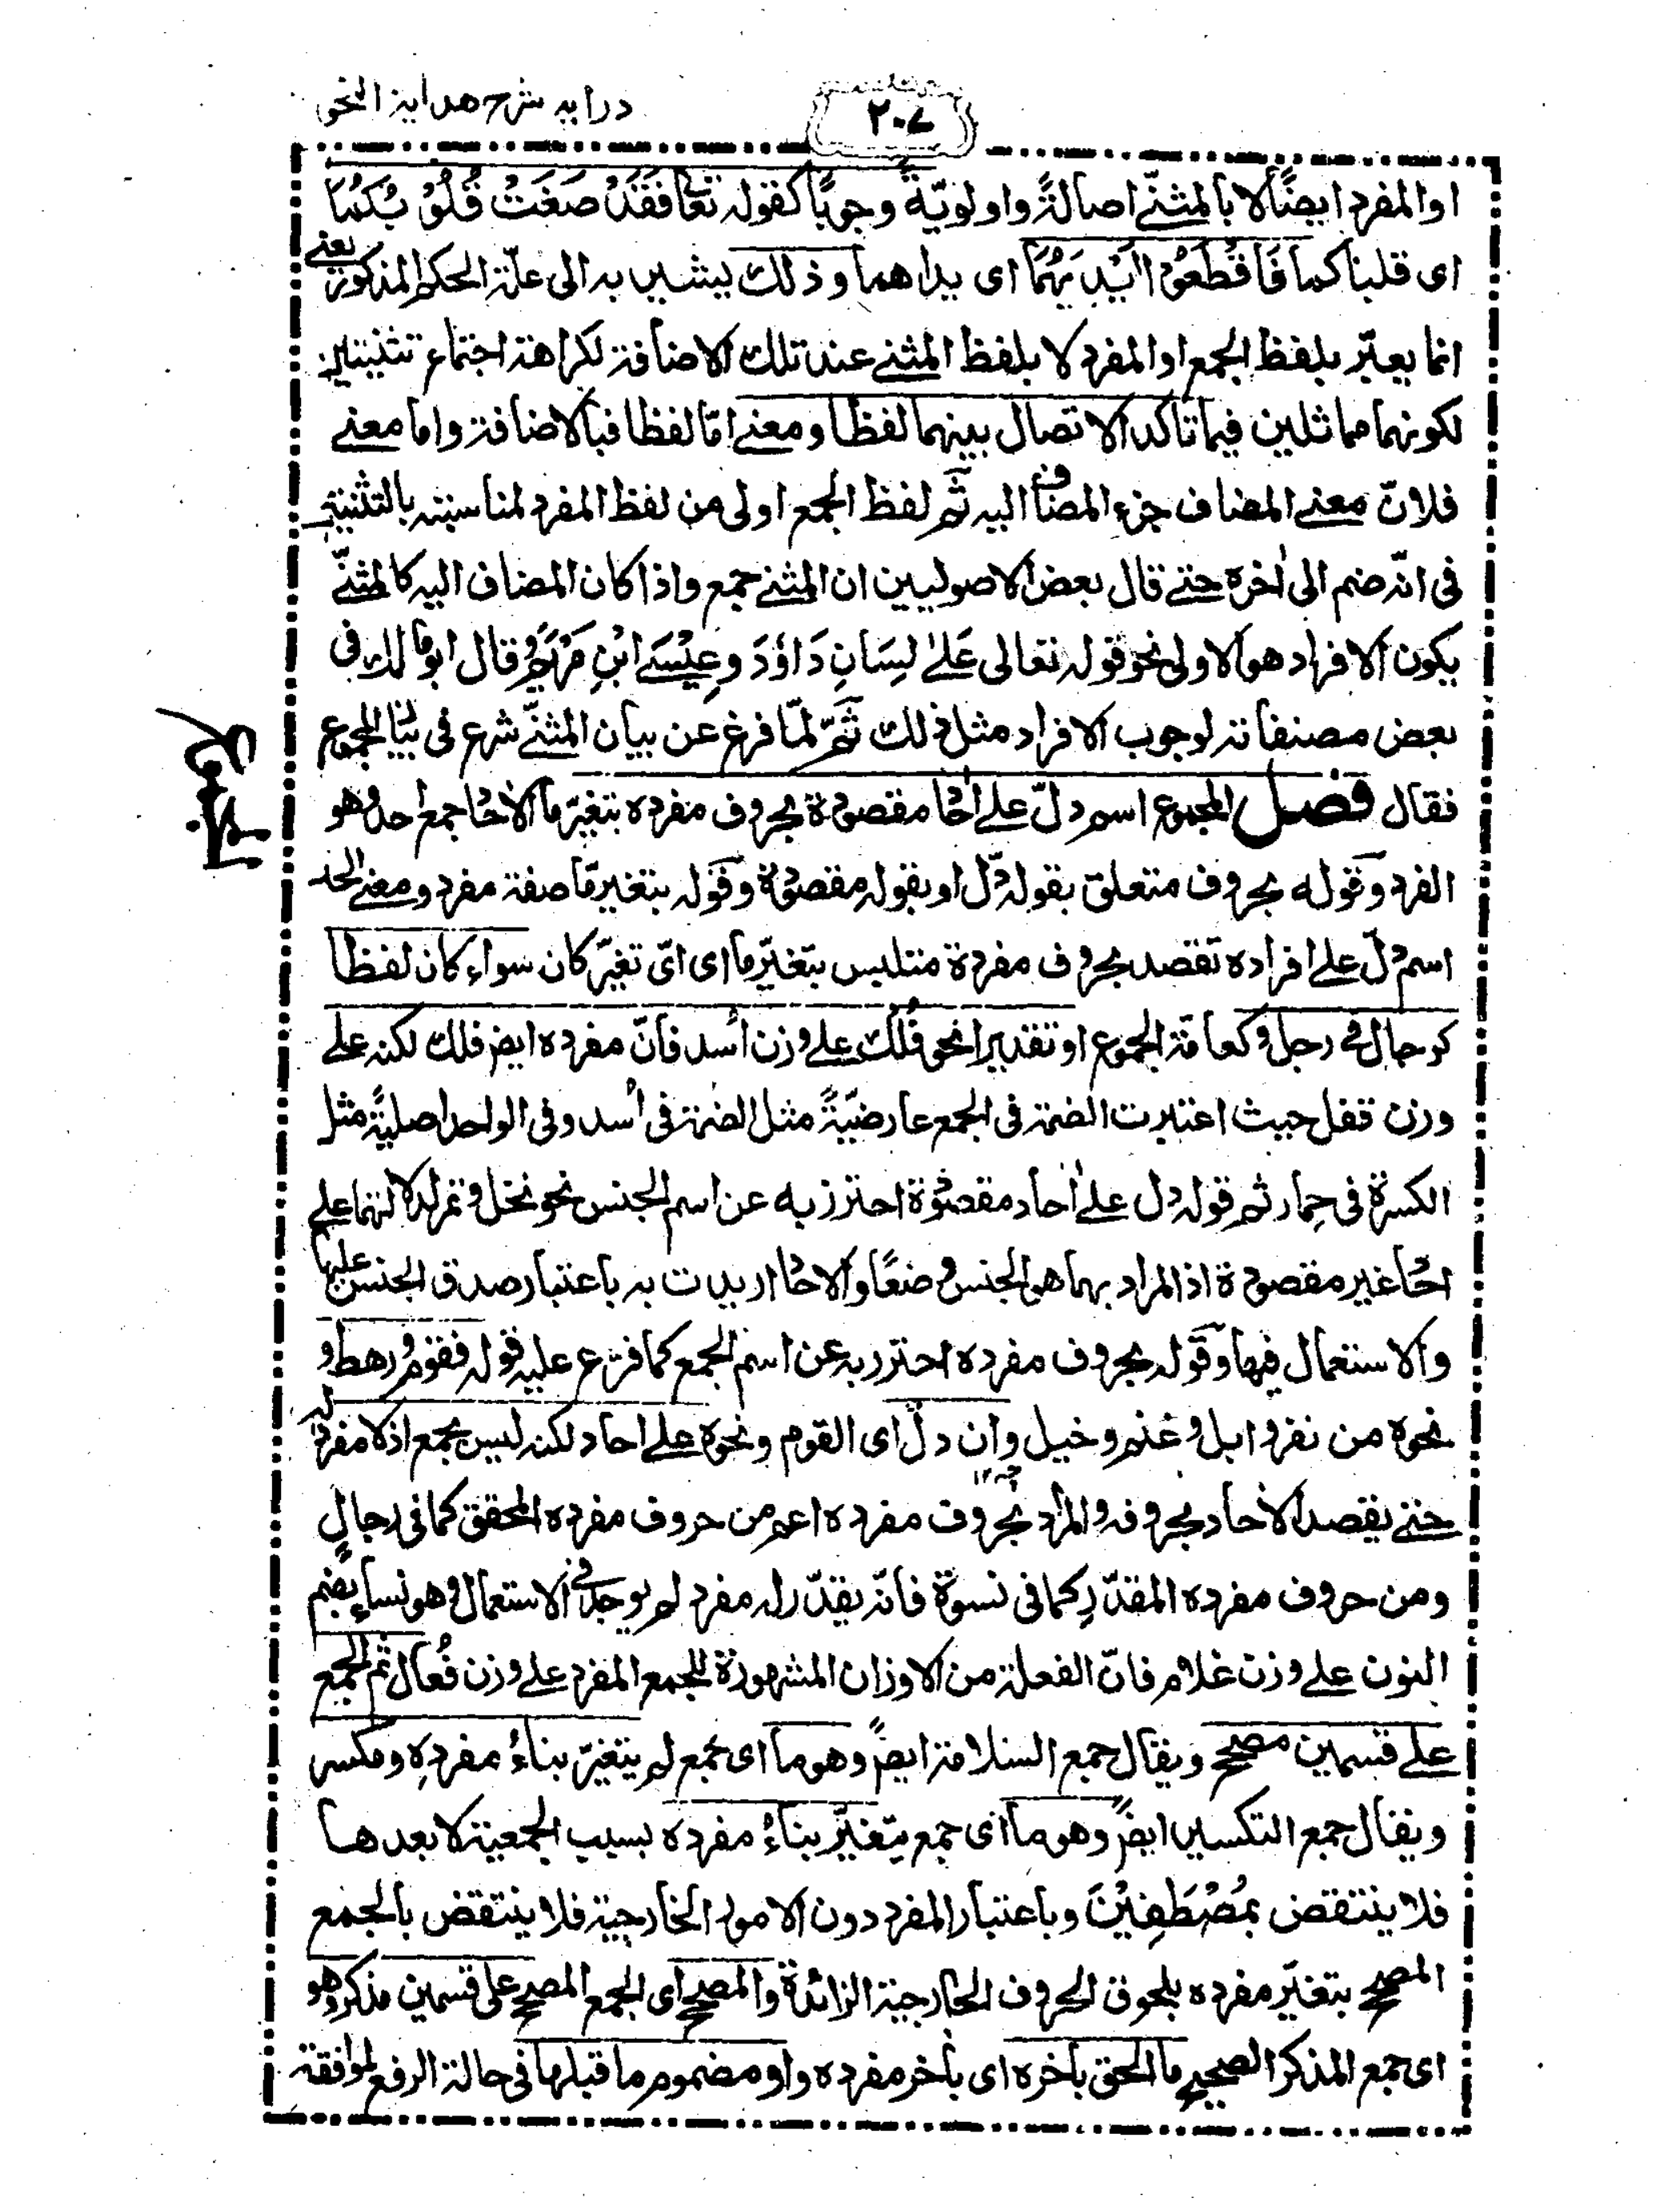 درايه شرح هداية النحو
٢٠٧
او المفرد ايضًا لا بالمثنّٰى اصالةً واولويّةً وجوبًا كقوله تعا فَقَدْ صَغَتْ قُلُوْبُكُمَا
اى قلبا كما فَاقْطَعُوْا اَيْدِيَهُمَا اى يداهما وذلك يشير به الى علّة الحكم المذكور يعنى
انما يعبّر بلفظ الجمع او المفرد لا بلفظ المثنى عند تلك الاضافة لكراهة اجتماع تثنيتين
لكونهما مماثلين فيما تاكد الاتصال بينهما لفظا ومعنى امّا لفظا فبالاضافة واما معنى
فلانّ معنى المضاف جزء المضاف اليه ثم لفظ الجمع اولى من لفظ المفرد لمناسبته بالتثنية
فى انّه ضم الى اٰخره حتى قال بعض الاصوليين ان المثنى جمع واذا كان المضاف اليه كالمثنّى
يكون الافراد هو الاولى نحو قوله تعالى عَلىٰ لِسَانِ دَاوٗدَ وعِيْسَى ابْنِ مَرْيَمَ وقال ابو مالك فى
بعض مصنفاته لوجوب الافراد مثل ذلك ثمّ لمّا فرغ عن بيان المثنّى شرع فى بيا المجموع
فقال فصل المجموع اسم دلّ على اٰحا مقصودة بحروف مفرده بتغيّر ما الاٰحا جمع احد وهو
الفرد وقوله بحروف متعلق بقوله دلّ او بقوله مقصودة وقوله بتغير مّا صفة مفرد ومعنى الحد
اسم دلّ على افراده تقصد بحروف مفردة متلبس بتغيّر ما اى اىّ تغيّر كان سواء كان لفظا
كرجال فى رجل وكعامّة الجموع او تقديرا نحو فُلْك على وزن اُسد فانّ مفرده ايض فلك لكنه على
وزن قفل حيث اعتبرت الضمة فى الجمع عارضيّةً مثل الضمة فى اُسد وفى الواحد اصليةً مثل
الكسرة فى حِمار ثم قوله دل على اٰحاد مقصودة احترز به عن اسم الجنس نحو نخل وتمر لدلالتهما على
احٰا غير مقصودة اذ المراد بهما هو الجنس وضعًا والاحٰا اريدت به باعتبار صدق الجنس عليها
والاستعمال فيها وقوله بحروف مفرده احترز به عن اسم الجمع كما فرّع عليه قوله فقوم ورهط و
نحوه من نفر وابل وغنم وخيل وان دلّ اى القوم ونحوه على احاد لكنه ليس بجمع اذ لا مفرد له
حتى يقصد الاٰحاد بحروفه والمراد بحروف مفرده اعم من حروف مفرده المحقق كما فى رجال
ومن حروف مفرده المقدّر كما فى نسوة فانّه يقدّر له مفرد لم يوجد فى الاستعمال وهو نساء بضم
النون على وزن غلام فانّ الفعلة من الاوزان المشهورة للجمع المفرد على وزن فُعال ثم الجمع
على قسمين مصحح ويقال جمع السلامة ايضً وهو ما اى جمع لم يتغيّر بناءُ مفردِه ومكسر
ويقال جمع التكسير ايضً وهو ما اى جمع يتغيّر بناءُ مفرده بسبب الجمعية لا بعدها
فلا ينتقض بمُصْطَفِيْنَ وباعتبار المفرد دون الامور الخارجية فلا ينتقض بالجمع
المصحح بتغيّر مفرده بلحوق الحروف الخارجية الزائدة والمصحح اى الجمع المصحح على قسمين مذكر وهو
اى جمع المذكر الصحيح ما الحق باٰخره اى باٰخر مفرده واو مضموم ما قبلها فى حالة الرفع لموافقة